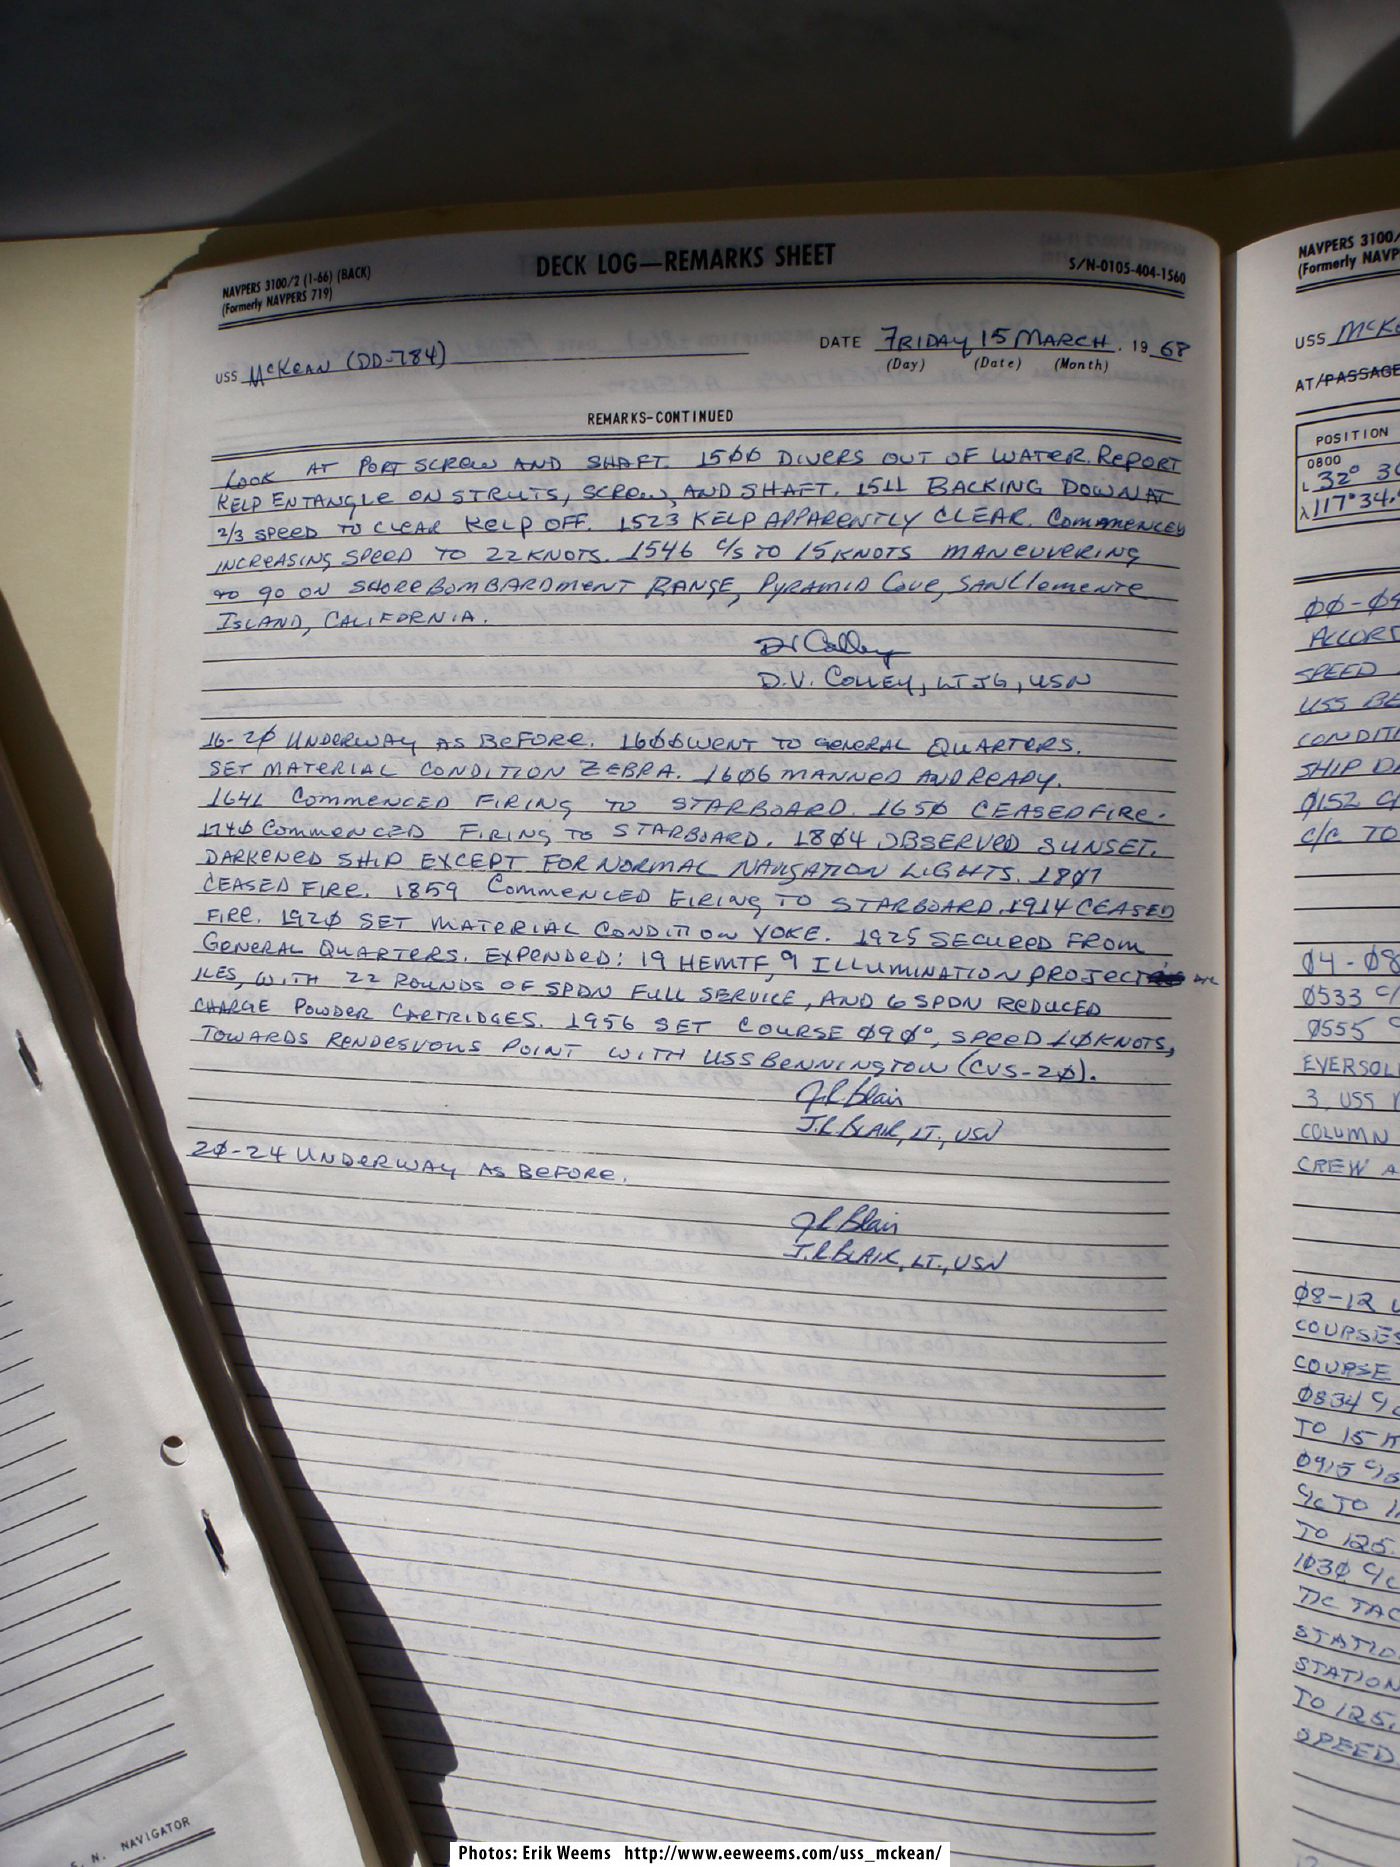 NAVPERS 3100/2 (1-66) (BACK)
(Formerly NAVPERS 719)
DECK LOG—REMARKS SHEET
S/N-0105-404-1560
USS McKean (DD-784)
DATE FRIDAY 15 MARCH. 1968
(Day) (Date) (Month)
REMARKS-CONTINUED
LOOK AT PORT SCREW AND SHAFT. 15ØØ DIVERS OUT OF WATER. REPORT
KELP ENTANGLE ON STRUTS, SCREW, AND SHAFT. 1511 BACKING DOWN AT
2/3 SPEED TO CLEAR KELP OFF. 1523 KELP APPARENTLY CLEAR. COMMENCED
INCREASING SPEED TO 22 KNOTS. 1546 C/S TO 15 KNOTS MANEUVERING
TO GO ON SHORE BOMBARDMENT RANGE, PYRAMID COVE, SAN CLEMENTE
ISLAND, CALIFORNIA.
DV Colley
D.V. COLLEY, LTJG, USN
16-2Ø UNDERWAY AS BEFORE. 16ØØ WENT TO GENERAL QUARTERS.
SET MATERIAL CONDITION ZEBRA. 16Ø6 MANNED AND READY.
1641 COMMENCED FIRING TO STARBOARD. 165Ø CEASED FIRE.
174Ø COMMENCED FIRING TO STARBOARD. 18Ø4 OBSERVED SUNSET.
DARKENED SHIP EXCEPT FOR NORMAL NAVIGATION LIGHTS. 18Ø7
CEASED FIRE. 1859 COMMENCED FIRING TO STARBOARD. 1914 CEASED
FIRE. 192Ø SET MATERIAL CONDITION YOKE. 1925 SECURED FROM
GENERAL QUARTERS. EXPENDED: 19 HEMTF, 9 ILLUMINATION PROJECT
ILES, WITH 22 ROUNDS OF SPDN FULL SERVICE, AND 6 SPDN REDUCED
CHARGE POWDER CARTRIDGES. 1956 SET COURSE Ø9Ø°, SPEED 1Ø KNOTS,
TOWARDS RENDESVOUS POINT WITH USS BENNINGTON (CVS-2Ø).
JR Blair
J.R. BLAIR, LT., USN
2Ø-24 UNDERWAY AS BEFORE.
JR Blair
J.R. BLAIR, LT., USN
S. N. NAVIGATOR
NAVPERS 3100/
(Formerly NAVP
USS McK
AT/PASSAGE
POSITION
0800
L 32°
λ 117° 34.
ØØ-Ø4
ACCORD
SPEED
USS BE
CONDITI
SHIP DA
Ø152 C/
C/C TO
Ø4-Ø8
Ø533 C/
Ø555
EVERSOL
3, USS
COLUMN
CREW A
Ø8-12 U
COURSES
COURSE
Ø834 C/C
TO 15 K
Ø915 C/S
C/C TO 1
TO 125.
1Ø3Ø C/C
TIC TAC
STATIO
STATION
TO 125.
SPEED
Photos: Erik Weems http://www.eeweems.com/uss_mckean/